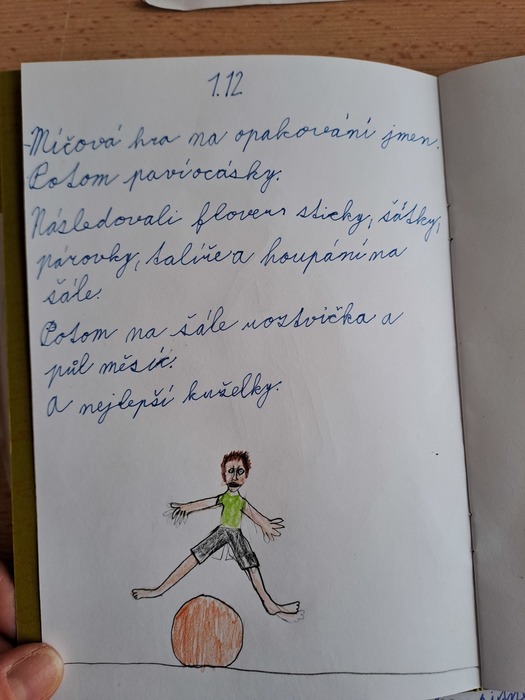 1.12
-Míčová hra na opakování jmen.
Potom pavíocásky.
Následovali flovers sticky, šátky,
párovky, talíře a houpání na
šále.
Potom na šále roztvička a
půl měsíc.
a nejlepší kuželky.